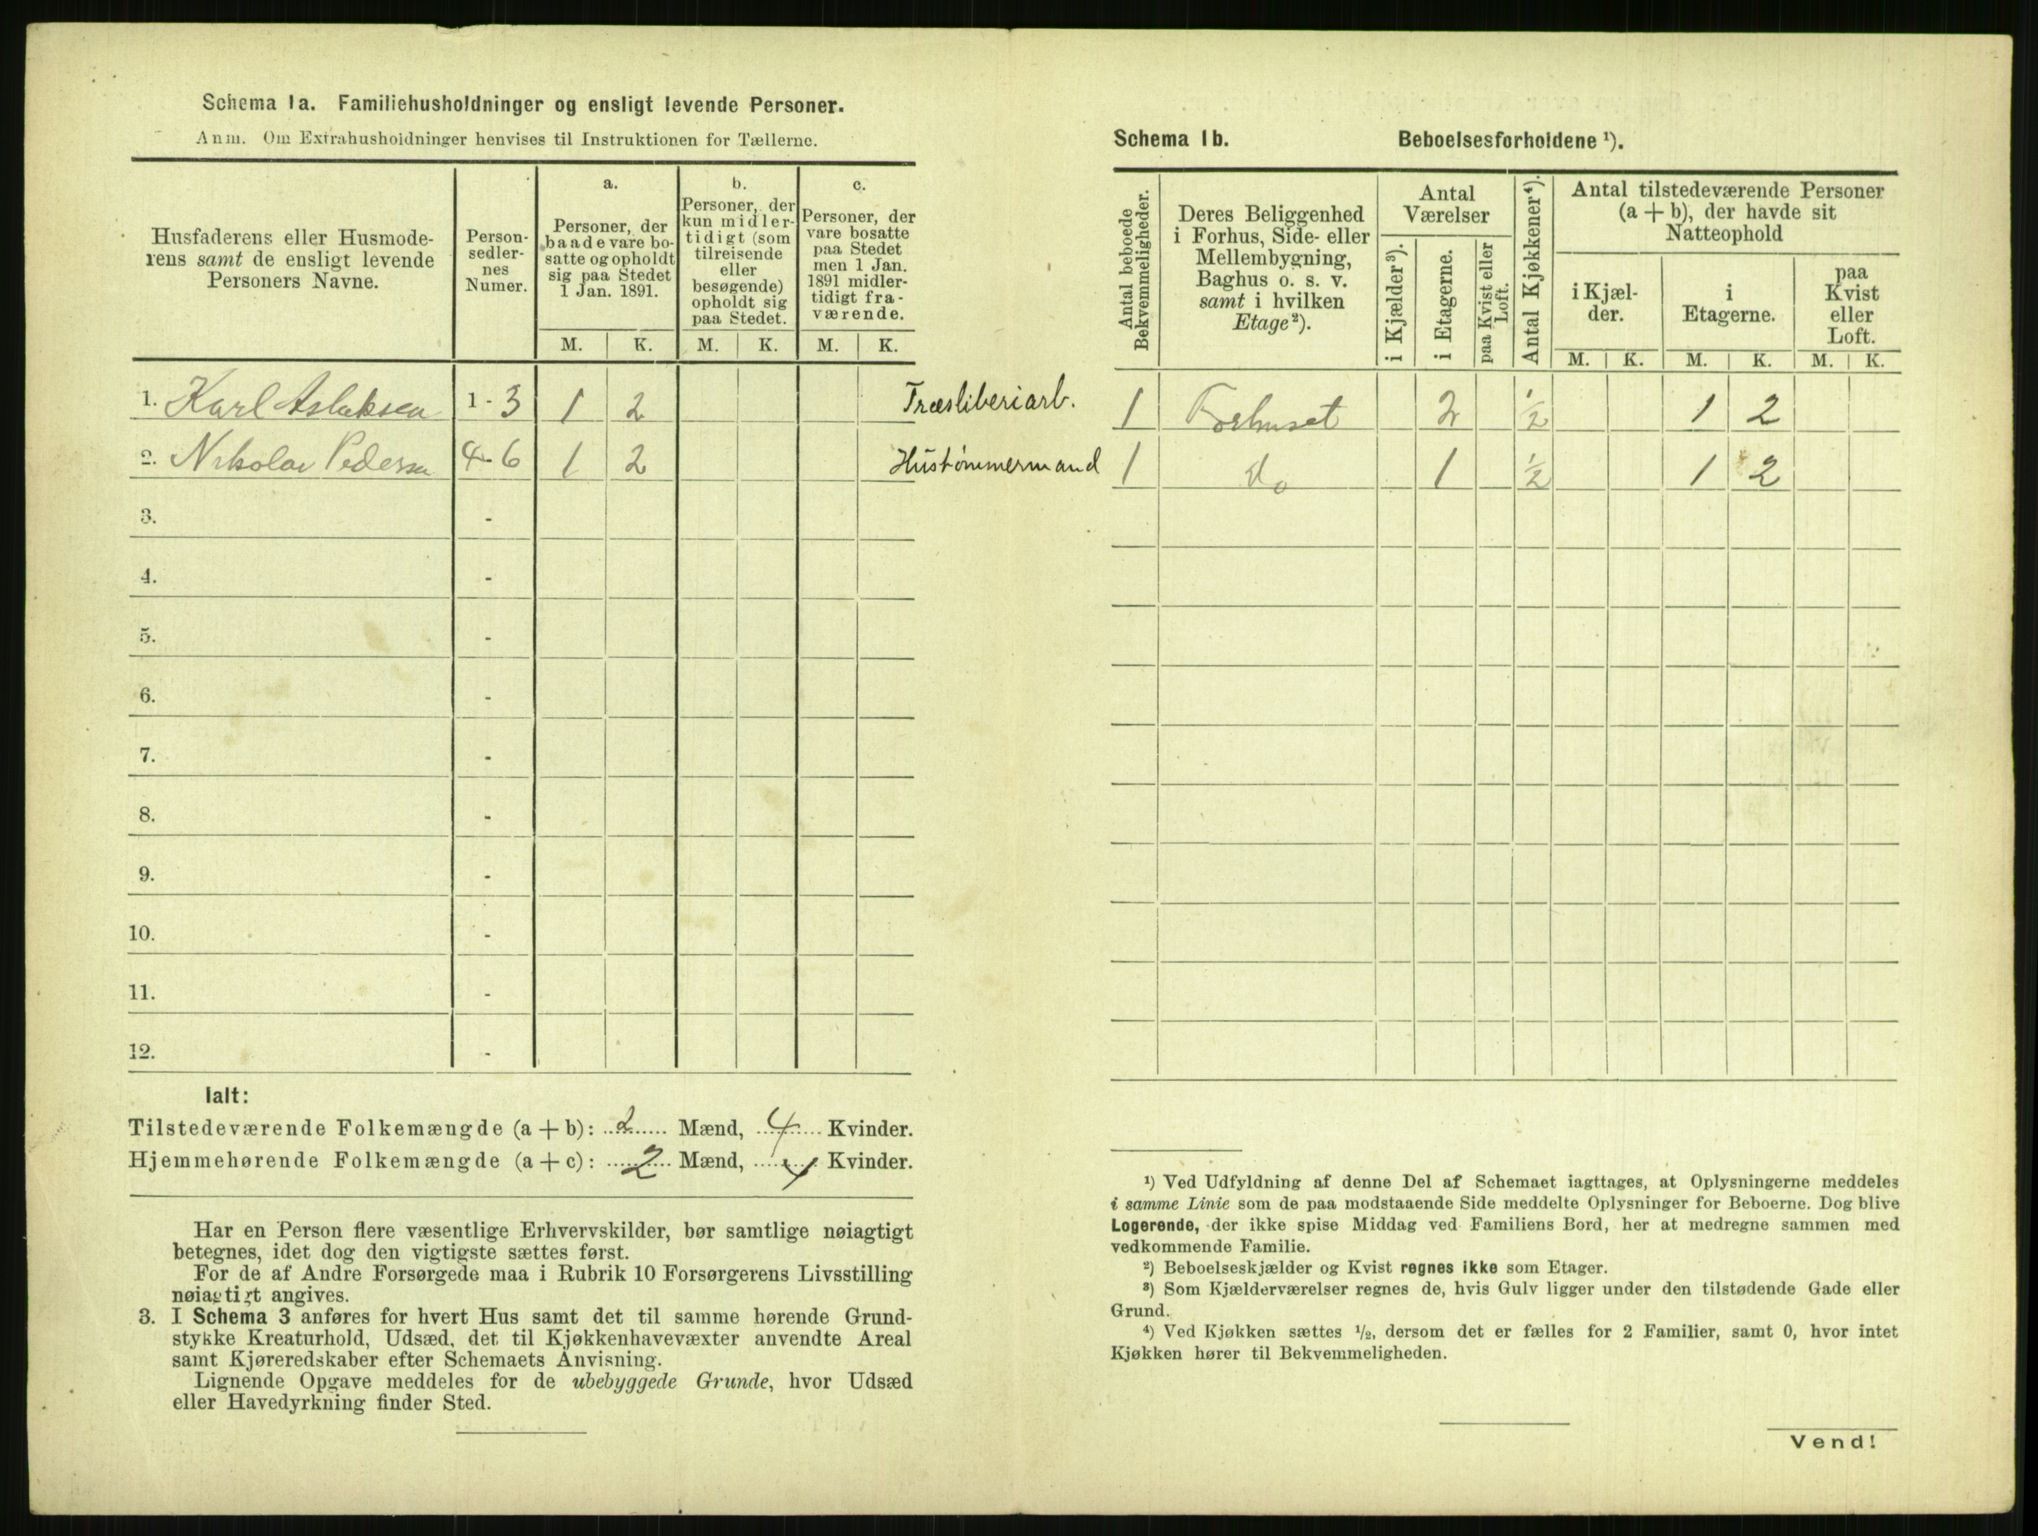 Schema 1a. Familiehusholdninger og ensligt levende Personer.
Anm. Om Extrahusholdninger henvises til Instruktionen for Tællerne.
Husfaderens eller Husmode-
rens samt de ensligt levende
Personers Navne.
Person-
sedler-
nes
Numer.
a.
Personer, der
baade vare bo-
satte og opholdt
sig paa Stedet
1 Jan. 1891.
b.
Personer, der
kun midler-
tidigt (som
tilreisende
eller
besøgende)
opholdt sig
paa Stedet.
c.
Personer, der
vare bosatte
paa Stedet
men 1 Jan.
1891 midler-
tidigt fra-
værende.
M. K. M. K. M. K.
1. Karl Aslaksen 1-3 1 2 Træsliberiarb.
2. Nikolai Pedersen 4-6 1 2 Hustømmermand
3. -
4. -
5. -
6. -
7. -
8. -
9. -
10. -
11. -
12. -
Ialt:
Tilstedeværende Folkemængde (a+b): 2 Mænd, 4 Kvinder.
Hjemmehørende Folkemængde (a+c): 2 Mænd, 4 Kvinder.
Har en Person flere væsentlige Erhvervskilder, bør samtlige nøiagtigt
betegnes, idet dog den vigtigste sættes først.
For de af Andre Forsørgede maa i Rubrik 10 Forsørgerens Livsstilling
nøiagtigt angives.
3. I Schema 3 anføres for hvert Hus samt det til samme hørende Grund-
stykke Kreaturhold, Udsæd, det til Kjøkkenhavevæxter anvendte Areal
samt Kjøreredskaber efter Schemaets Anvisning.
Lignende Opgave meddeles for de ubebyggede Grunde, hvor Udsæd
eller Havedyrkning finder Sted.
Schema 1b. Beboelsesforholdene ¹).
Antal beboede
Bekvemmeligheder.
Deres Beliggenhed
i Forhus, Side- eller
Mellembygning,
Baghus o. s. v.
samt i hvilken
Etage²).
Antal
Værelser
i Kjælder³).
i Etagerne.
paa Kvist eller
Loft.
Antal Kjøkkener⁴).
Antal tilstedeværende Personer
(a + b), der havde sit
Natteophold
i Kjæl-
der.
i
Etagerne.
paa
Kvist
eller
Loft.
M. K. M. K. M. K.
1 Forhuset 2 1/2 1 2
1 do 1 1/2 1 2
¹) Ved Udfyldning af denne Del af Schemaet iagttages, at Oplysningerne meddeles
i samme Linie som de paa modstaaende Side meddelte Oplysninger for Beboerne. Dog blive
Logerende, der ikke spise Middag ved Familiens Bord, her at medregne sammen med
vedkommende Familie.
²) Beboelseskjælder og Kvist regnes ikke som Etager.
³) Som Kjælderværelser regnes de, hvis Gulv ligger under den tilstødende Gade eller
Grund.
⁴) Ved Kjøkken sættes ½, dersom det er fælles for 2 Familier, samt 0, hvor intet
Kjøkken hører til Bekvemmeligheden.
Vend!